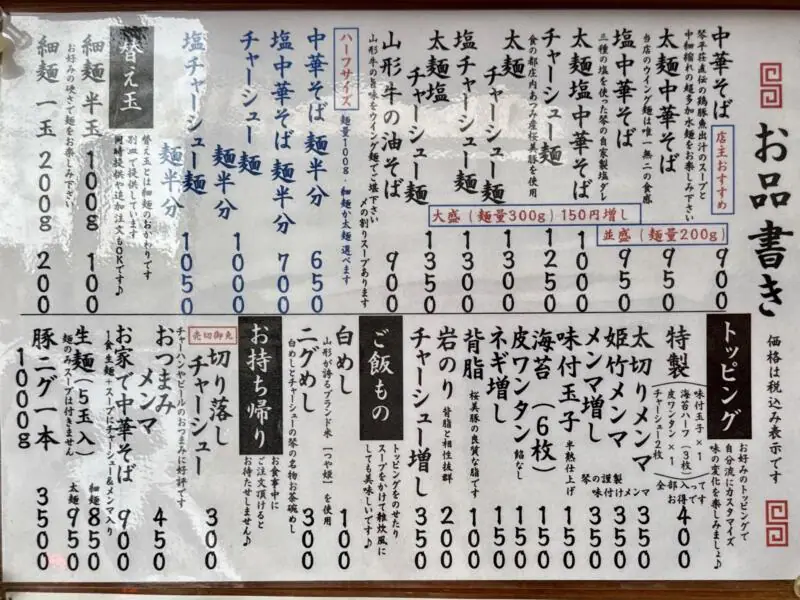 お品書き
価格は税込み表示です
中華そば 900
店主おすすめ
琴平荘直伝の鶏豚魚出汁のスープと
中細縮れの超多加水麺をお楽しみ下さい
太麺中華そば 950
当店のウイング麺は唯一無二の食感
塩中華そば 950
三種の塩を使った琴の自家製塩ダレ
太麺塩中華そば 1000
チャーシュー麺 1250
食の都庄内あつみ産桜美豚を使用
太麺チャーシュー麺 1300
塩チャーシュー麺 1300
太麺塩チャーシュー麺 1350
並盛(麺量200g)
大盛(麺量300g)150円増し
山形牛の油そば 900
山形牛の旨味をウイング麺でご堪能下さい
〆の割りスープあります
ハーフサイズ
麺量100g・細麺か太麺選べます
中華そば 麺半分 650
塩中華そば 麺半分 700
チャーシュー麺 麺半分 1000
塩チャーシュー麺 麺半分 1050
替え玉
替え玉とは細麺のおかわりです
別皿で提供しています
同時提供や追加注文もOKです♪
細麺 半玉 100g 100
お好みの硬さで麺をお楽しみ下さい
細麺 一玉 200g 200
トッピング
お好みのトッピングで
自分流にカスタマイズ
味の変化を楽しみましょ♪
特製 400
味付玉子×1
海苔ハーフ(3枚)
皮ワンタン×1
チャーシュー2枚
全部入って
お得です
太切りメンマ 350
姫竹メンマ 350
メンマ増し 350
琴の謹製
味付けメンマ
味付玉子 150
半熟仕上げ
海苔(6枚) 150
皮ワンタン 150
餡なし
ネギ増し 150
背脂 100
桜美豚の良質な脂です
岩のり 200
背脂と相性抜群
チャーシュー増し 350
ご飯もの
トッピングをのせたり
スープをかけて雑炊風に
しても美味しいです♪
白めし 100
山形が誇るブランド米「つや姫」を使用
ニグめし 300
白めしとチャーシューの琴の名物お茶碗めし
お持ち帰り
お食事中に
ご注文頂けると
お待たせしません♪
売切御免
切り落しチャーシュー 300
チャーハンやビールのおつまみに好評です
おつまみメンマ 450
お家で中華そば 900
1食生麺+スープにチャーシュー&メンマ入り
生麺(5玉入)
細麺 850
太麺 950
麺のみスープは付きません
豚ニグ一本 1000g 3500